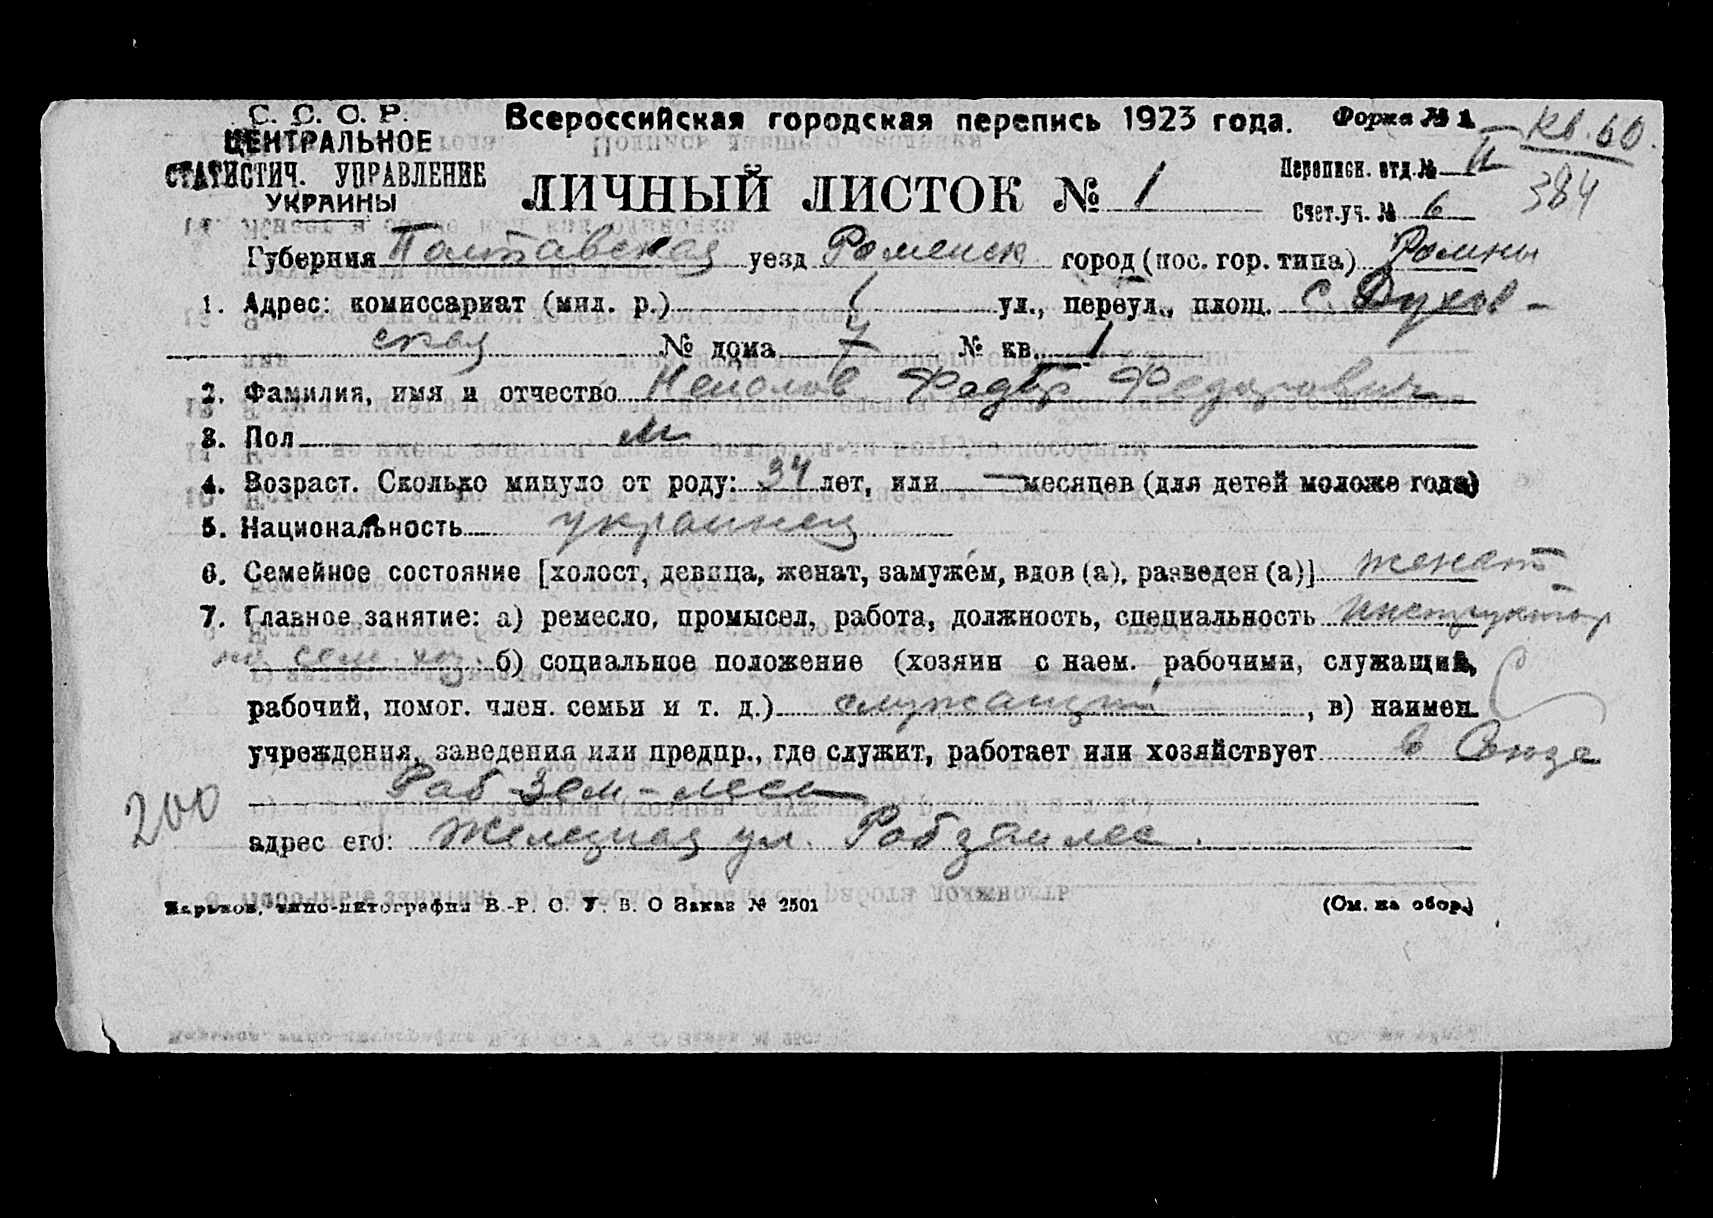 С. С. С. Р.
ЦЕНТРАЛЬНОЕ
СТАТИСТИЧ. УПРАВЛЕНИЕ
УКРАИНЫ
Всероссийская городская перепись 1923 года.
Форма № 1
кв. 60.
384
ЛИЧНЫЙ ЛИСТОК № 1
Переписн. отд. № II
Счет.уч. № 6
Губерния Полтавская уезд Роменск город (пос. гор. типа) Ромны
1. Адрес: комиссариат (мил. р.) ул., переул., площ. С. Духов-
ская № дома 7 № кв. 1
2. Фамилия, имя и отчество Федор Федорович
3. Пол м
4. Возраст. Сколько минуло от роду: 34 лет, или — месяцев (для детей моложе года)
5. Национальность украинец
6. Семейное состояние [холост, девица, женат, замужем, вдов (а), разведен (а)] женат
7. Главное занятие: а) ремесло, промысел, работа, должность, специальность инструктор
по сель. хоз. б) социальное положение (хозяин с наем. рабочими, служащий,
рабочий, помог. член. семьи и т. д.) служащий, в) наимен.
учреждения, заведения или предпр., где служит, работает или хозяйствует в Союзе
Раб-Зем-лес
200
адрес его: ул. Робземлес.
Харьков, типо-литография В.-Р. О. У. В. О Заказ № 2501
(См. на обор.)